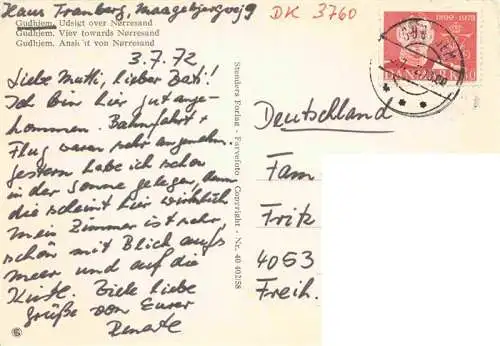 Hans Tranberg, Maagebjergvej 9
DK 3760
Gudhjem. Udsigt over Nørresand
Gudhjem. View towards Nørresand
Gudhjem. Ansicht von Nørresand
3.7.72
Liebe Mutti, lieber Bati!
Ich bin hier gut ange-
kommen. Bahnfahrt +
Flug waren sehr angenehm.
Gestern habe ich schon
in der Sonne gelegen, denn
die scheint hier wirklich
mein Zimmer ist sehr
schön mit Blick aufs
Meer und auf die
Küste. Viele liebe
Grüße von Eurer
Renate
Stenders Forlag - Farvefoto - Copyright - Nr. 40 402/58
1899-1972
Deutschland
Fam
Fritz
4053
Freih.